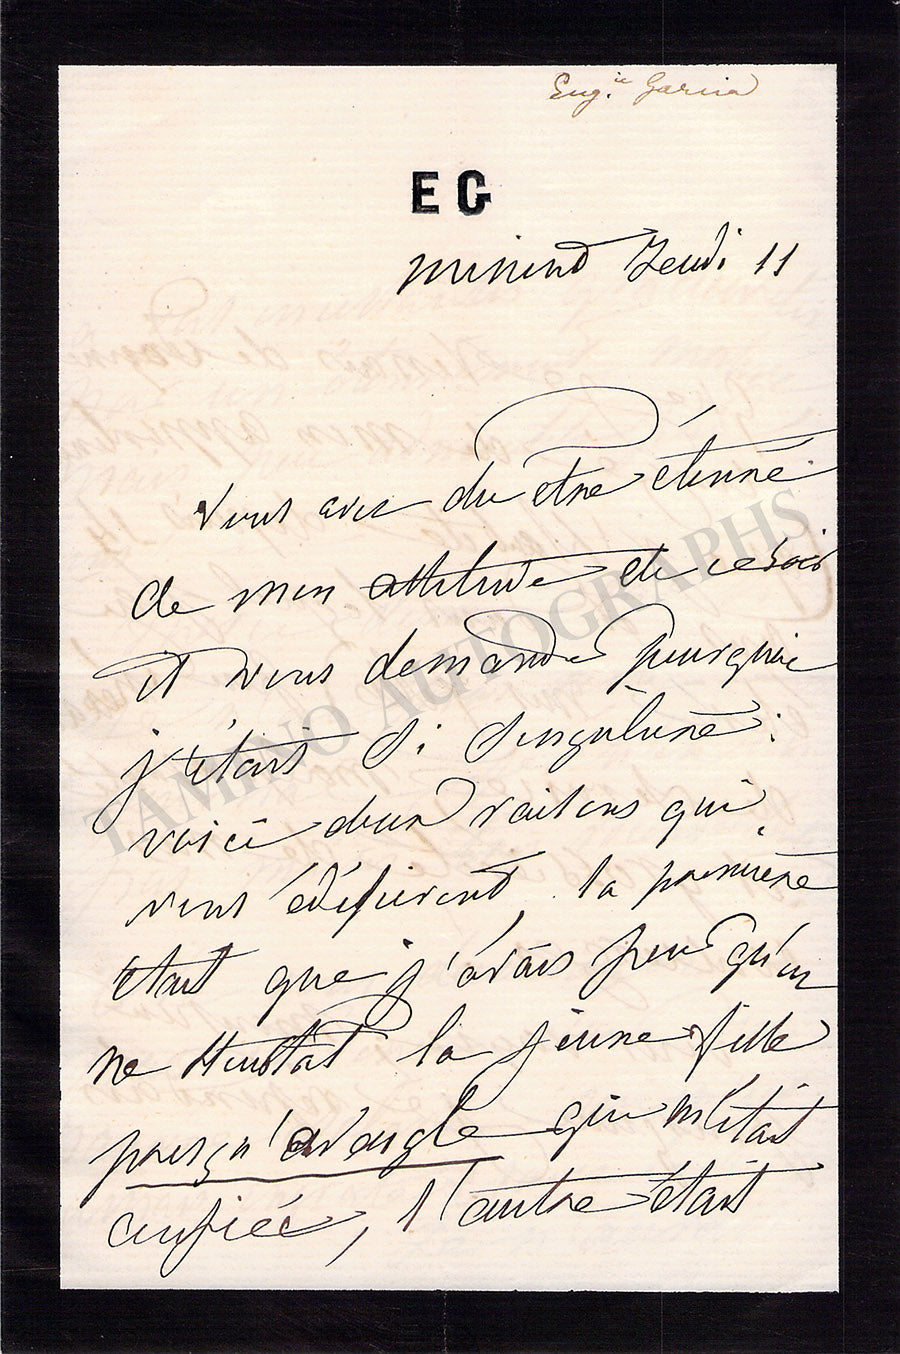 Eug.ie Garcia
E G
minuit Jeudi 11
Vous avez du etre étonné
de mon attitude de ce soir
et vous demander pourquoi
j'étais si singulière :
voici deux raisons qui
vous édifieront, la première
était que j'avais peur qu'on
ne heurtât la jeune fille
presqu'aveugle qui m'était
confiée, l'autre était
TAMINO AUTOGRAPHS